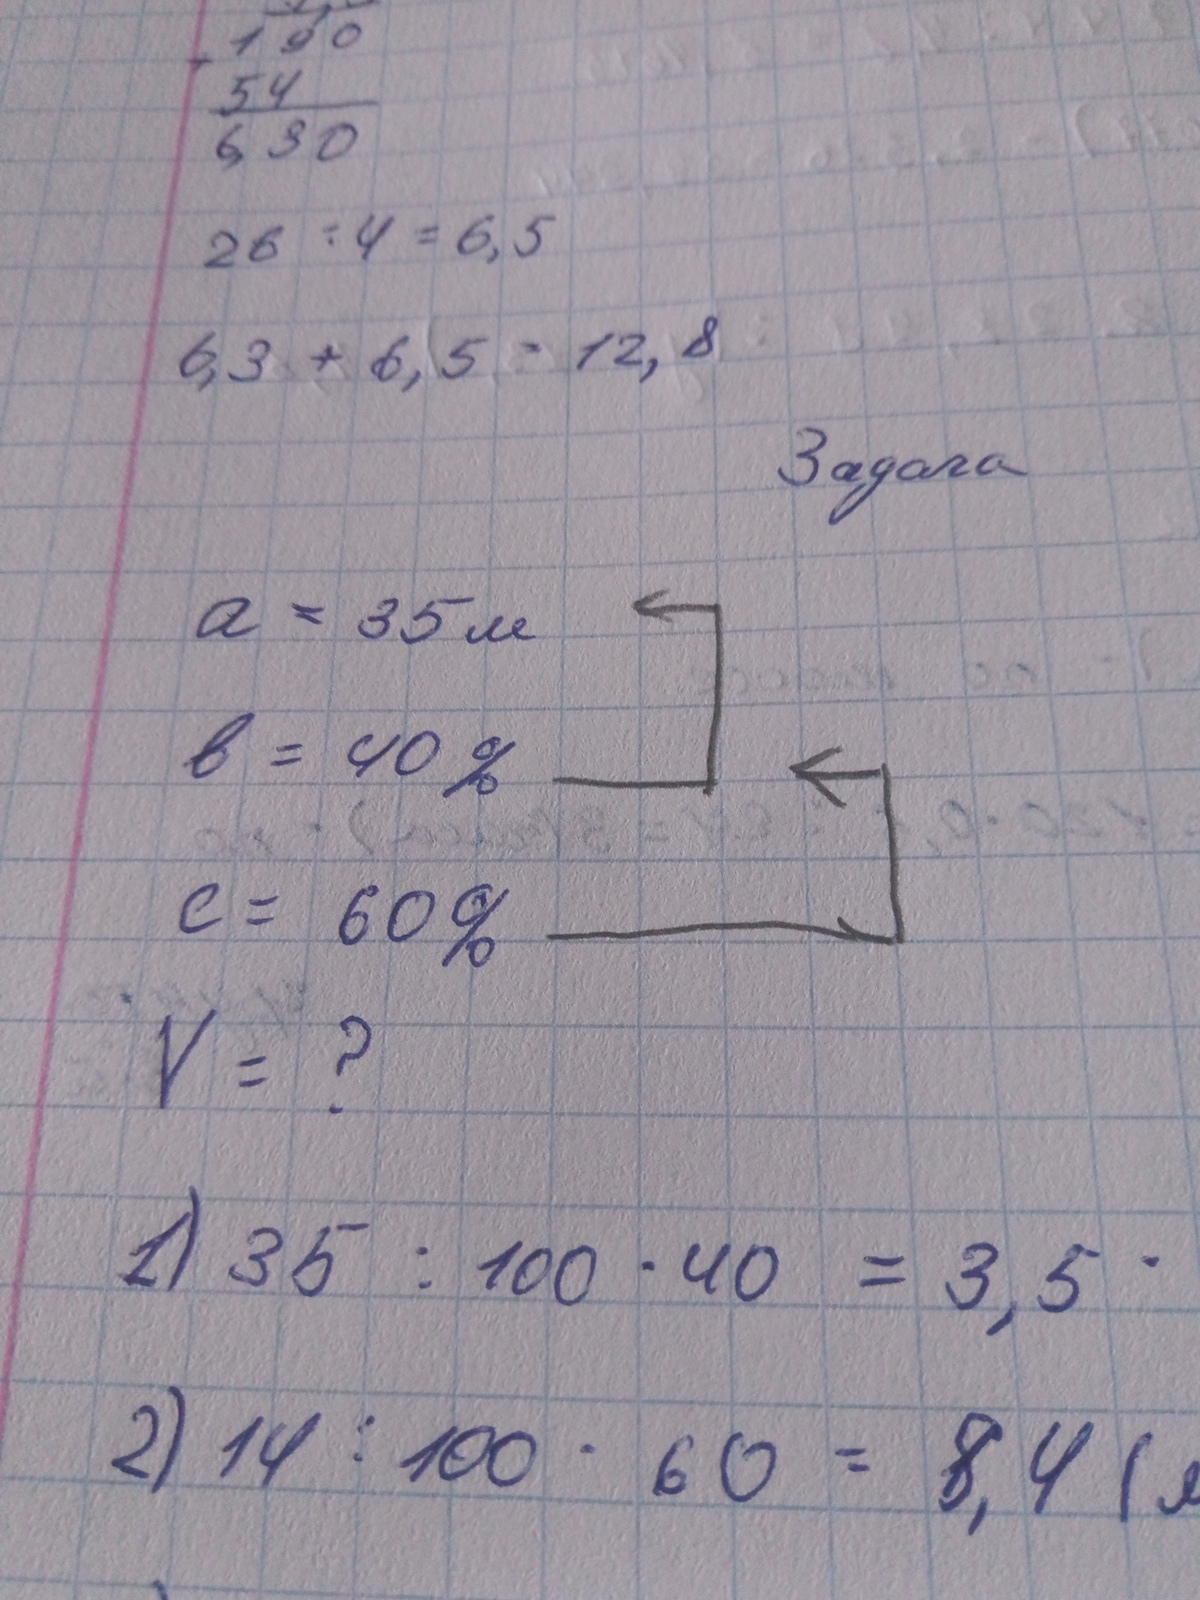 190
54
6,30
26 : 4 = 6,5
6,3 + 6,5 = 12,8
Задача
a = 35 м
b = 40 %
c = 60 %
V = ?
1) 35 : 100 · 40 = 3,5 ·
2) 14 : 100 · 60 = 8,4 (м